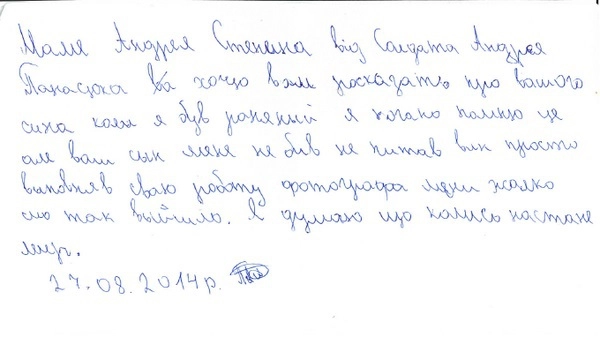 Маме Андрея Стенина від Солдата Андрея
Панасюка хочю вам росказать про вашого
сина коли я був раненый я погано помню це
але ваш сын мене не бив не питав він просто
выповняв сваю работу фотографа мени жалко
що так выйшло. Я думаю що колись настане
мир.
27.08.2014 р.